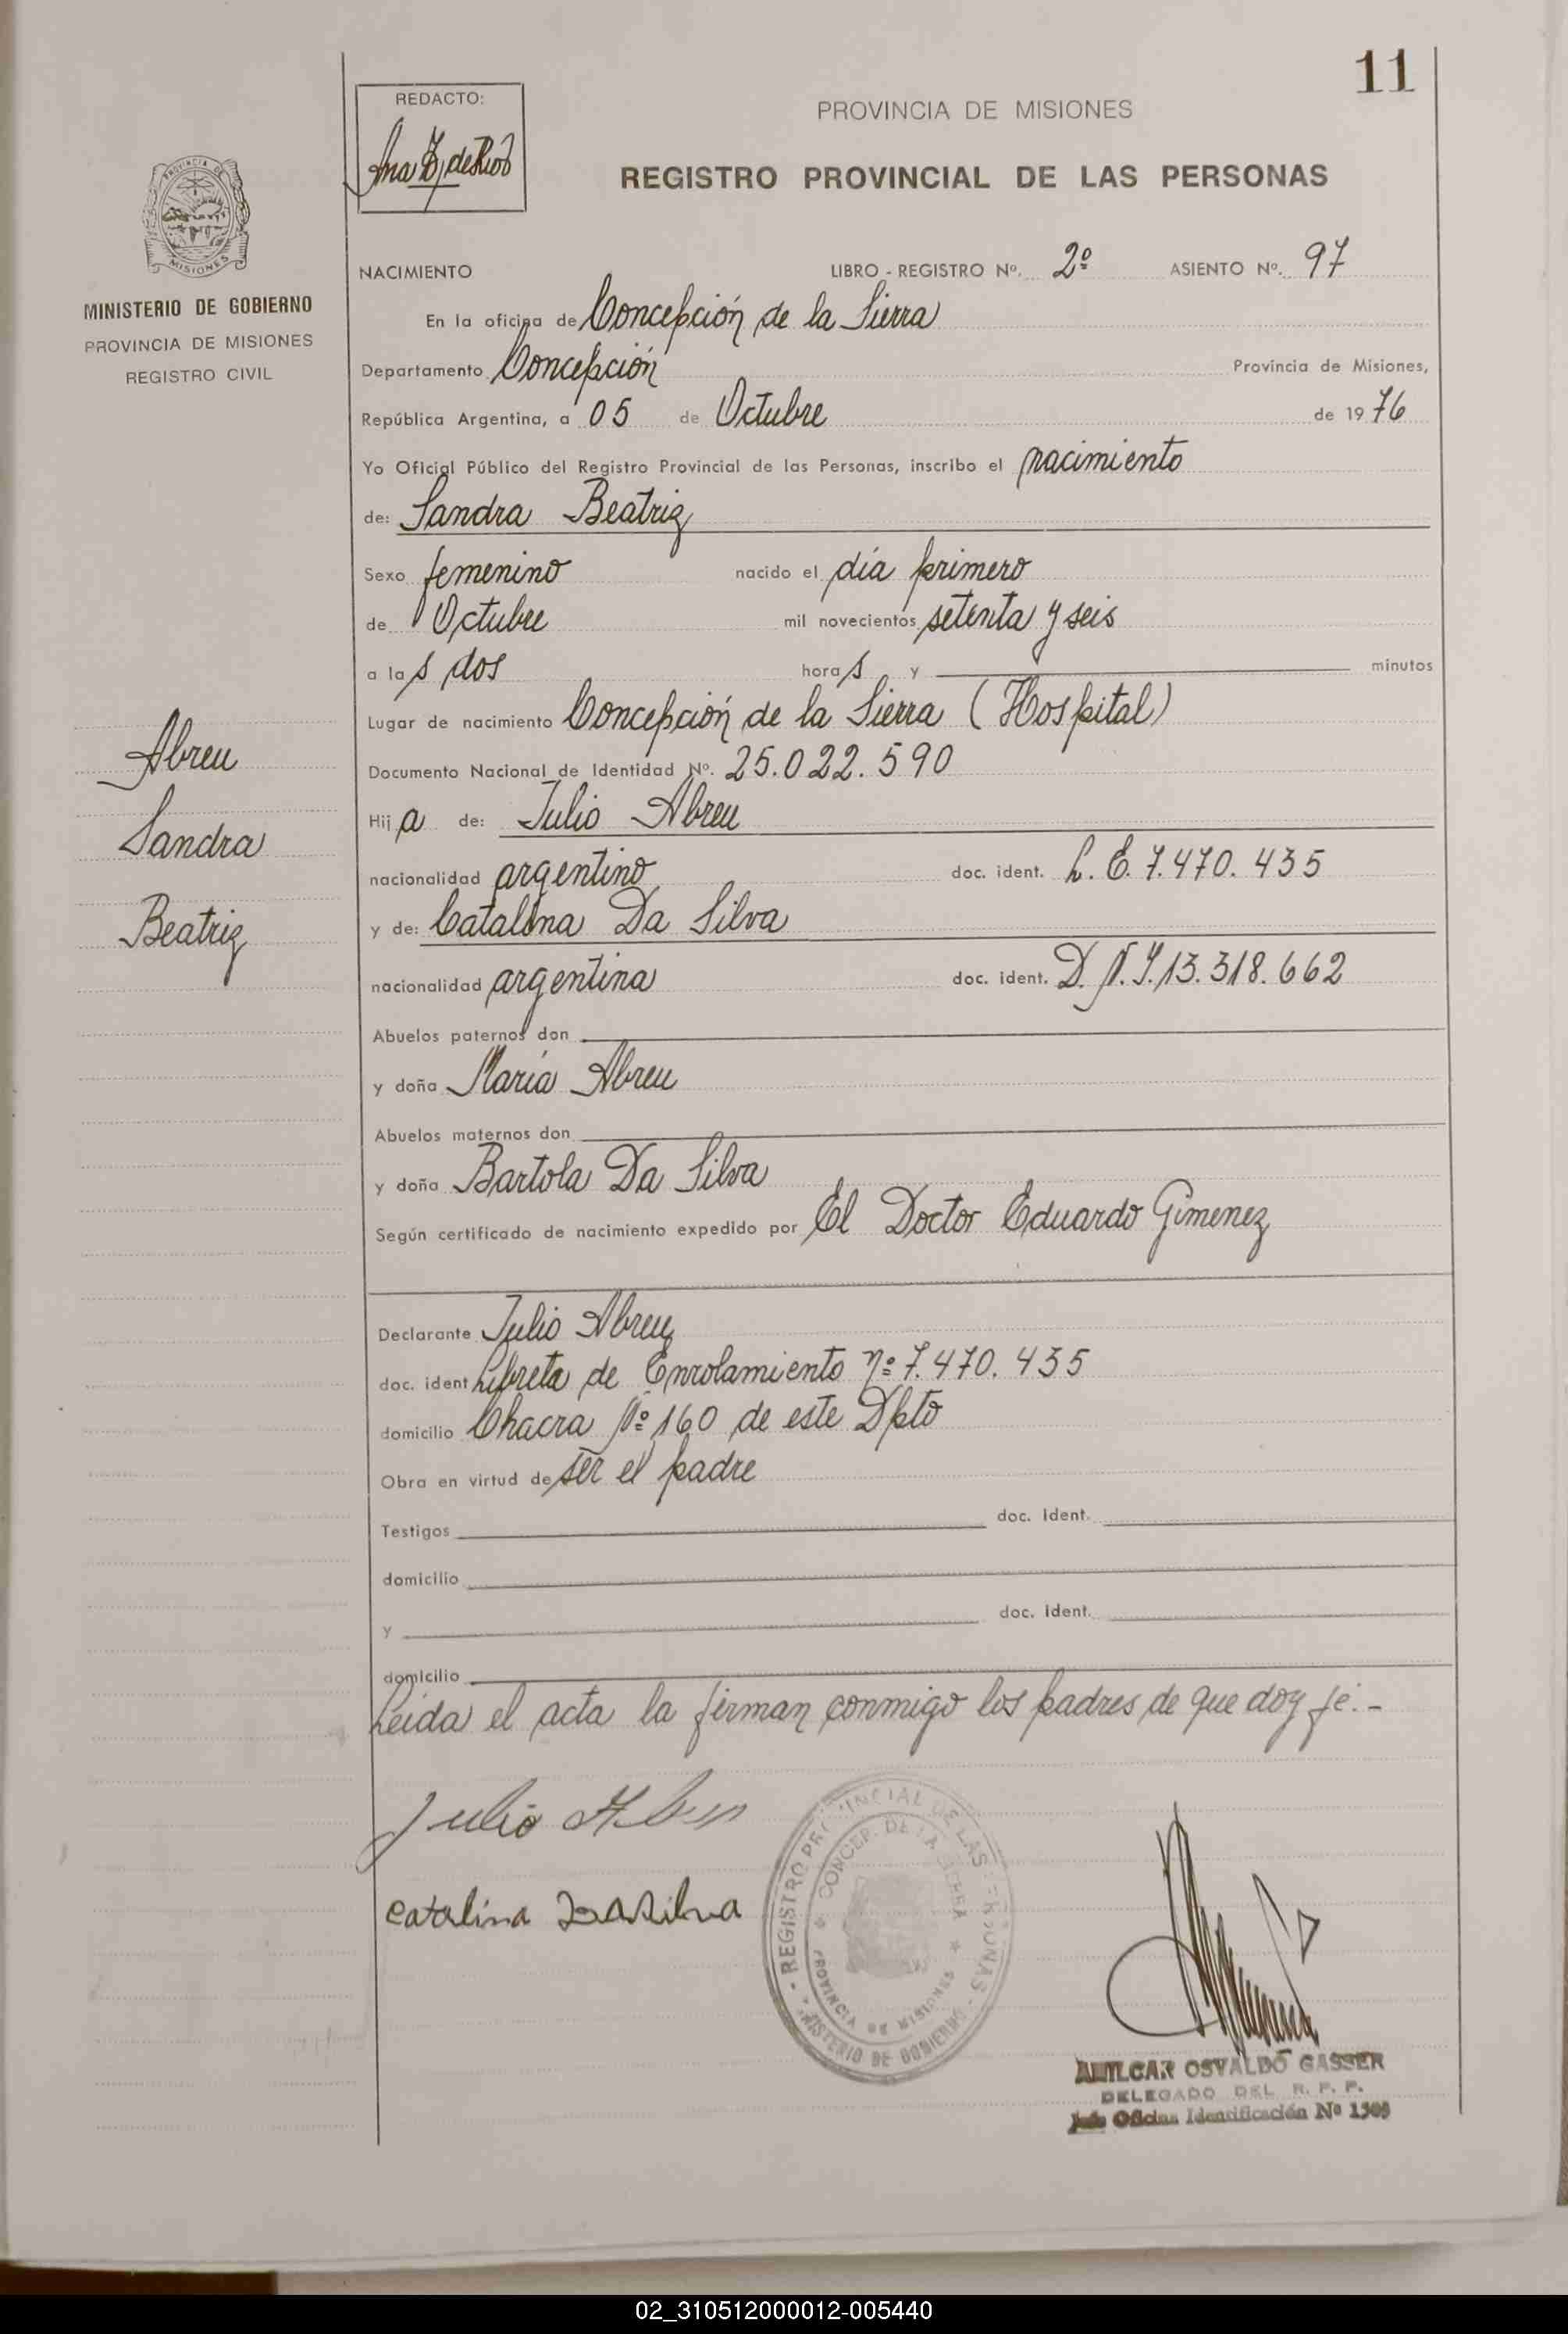 11
REDACTO:
PROVINCIA DE MISIONES
REGISTRO PROVINCIAL DE LAS PERSONAS
PROVINCIA
MISIONES
MINISTERIO DE GOBIERNO
PROVINCIA DE MISIONES
REGISTRO CIVIL
NACIMIENTO LIBRO - REGISTRO Nº. 2º ASIENTO Nº. 97
En la oficina de Concepción de la Sierra
Departamento Concepción Provincia de Misiones,
República Argentina, a 05 de Octubre de 1976
Yo Oficial Público del Registro Provincial de las Personas, inscribo el nacimiento
de: Sandra Beatriz
Sexo femenino nacido el día primero
de Octubre mil novecientos setenta y seis
a las dos horas y minutos
Lugar de nacimiento Concepción de la Sierra (Hospital)
Abreu
Sandra
Beatriz
Documento Nacional de Identidad Nº. 25.022.590
Hija de: Julio Abreu
nacionalidad argentino doc. ident. L. E. 7.470.435
y de: Catalina Da Silva
nacionalidad argentina doc. ident. D. N. I. 13.318.662
Abuelos paternos don
y doña María Abreu
Abuelos maternos don
y doña Bartola Da Silva
Según certificado de nacimiento expedido por El Doctor Eduardo Gimenez
Declarante Julio Abreu
doc. ident Libreta de Enrolamiento nº 7.470.435
domicilio Chacra Nº 160 de este Dpto
Obra en virtud de ser el padre
Testigos doc. ident.
domicilio
y doc. ident.
domicilio
Leida el acta la firman conmigo los padres de que doy fé.-
Julio Abreu
Catalina Da Silva
REGISTRO PROVINCIAL DE LAS PERSONAS
MINISTERIO DE GOBIERNO
CONCEP. DE LA SIERRA
PROVINCIA DE MISIONES
AMILCAR OSVALDO GASSER
DELEGADO DEL R. P. P.
Jefe Oficina Identificación Nº 1505
02_310512000012-005440